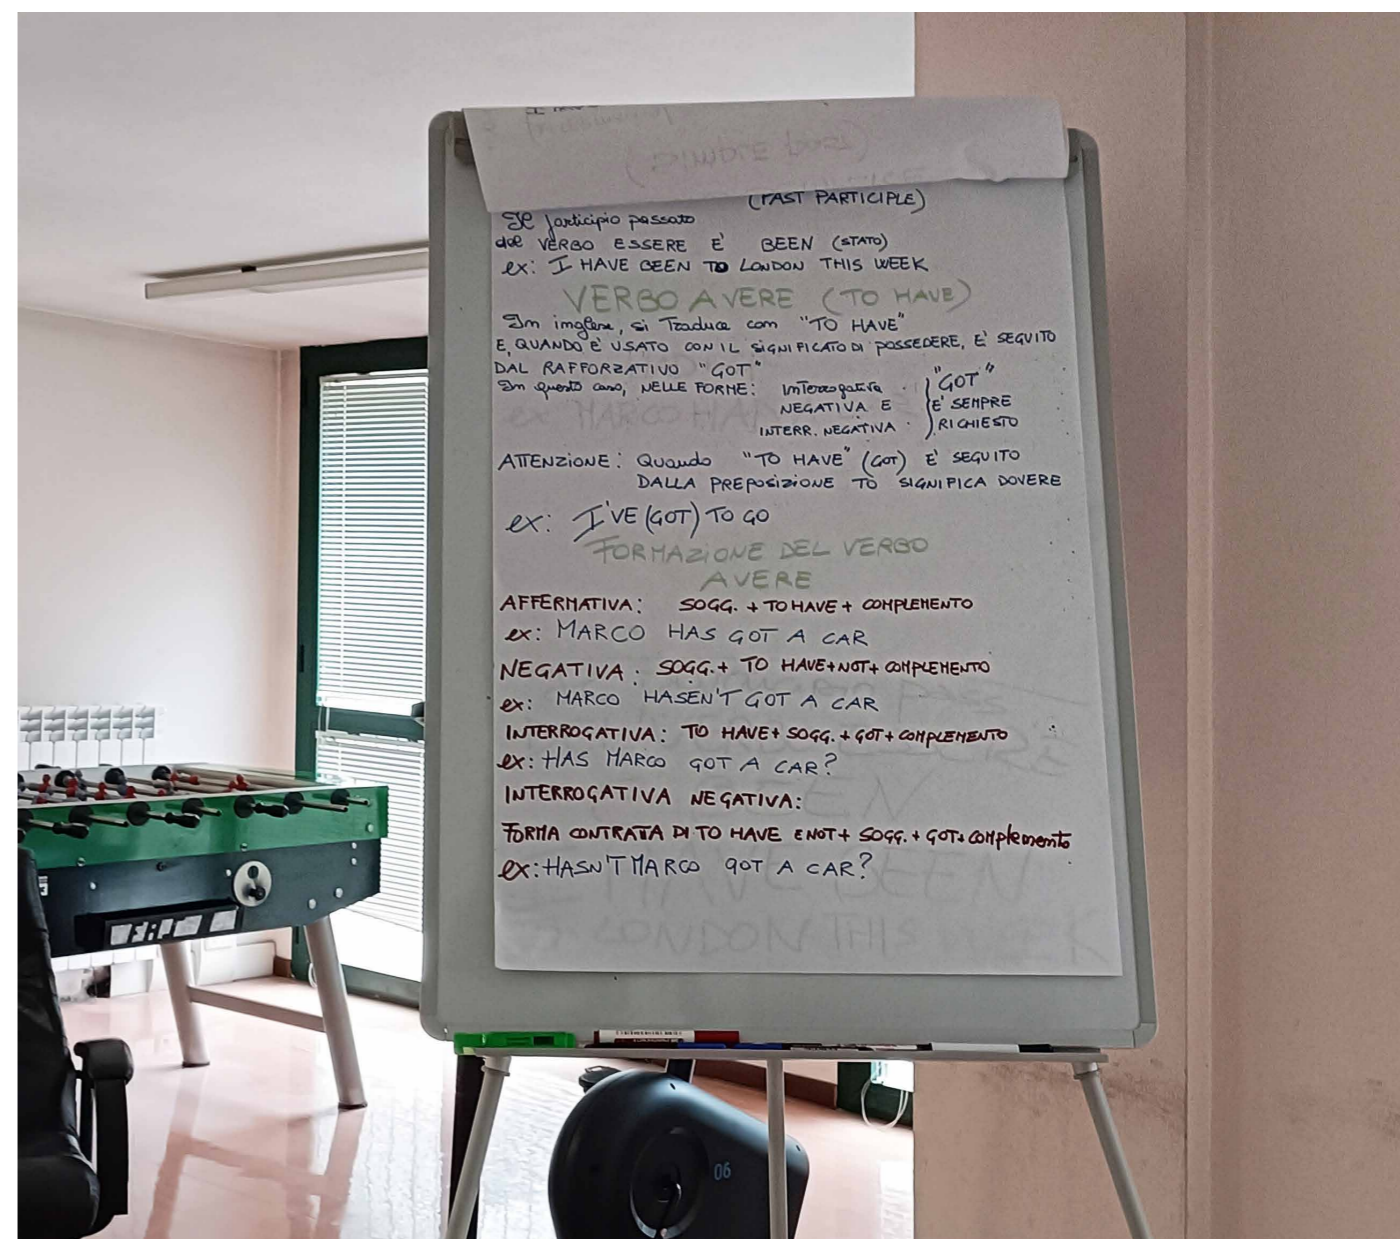 (PAST PARTICIPLE)
Il participio passato
del VERBO ESSERE E' BEEN (STATO)
ex: I HAVE BEEN TO LONDON THIS WEEK
VERBO AVERE (TO HAVE)
In inglese, si Traduce con "TO HAVE"
E, QUANDO E' USATO CON IL SIGNIFICATO DI POSSEDERE, E' SEGUITO
DAL RAFFORZATIVO "GOT"
In questo caso, NELLE FORME: Interrogativa "GOT"
NEGATIVA E E' SEMPRE
INTERR. NEGATIVA RICHIESTO
ATTENZIONE: Quando "TO HAVE" (GOT) E' SEGUITO
DALLA PREPOSIZIONE TO SIGNIFICA DOVERE
ex: I'VE (GOT) TO GO
FORMAZIONE DEL VERBO
AVERE
AFFERMATIVA: SOGG. + TO HAVE + COMPLEMENTO
ex: MARCO HAS GOT A CAR
NEGATIVA: SOGG. + TO HAVE + NOT + COMPLEMENTO
ex: MARCO HASEN'T GOT A CAR
INTERROGATIVA: TO HAVE + SOGG. + GOT + COMPLEMENTO
ex: HAS MARCO GOT A CAR?
INTERROGATIVA NEGATIVA:
FORMA CONTRATA DI TO HAVE E NOT + SOGG. + GOT + complemento
ex: HASN'T MARCO GOT A CAR?
06